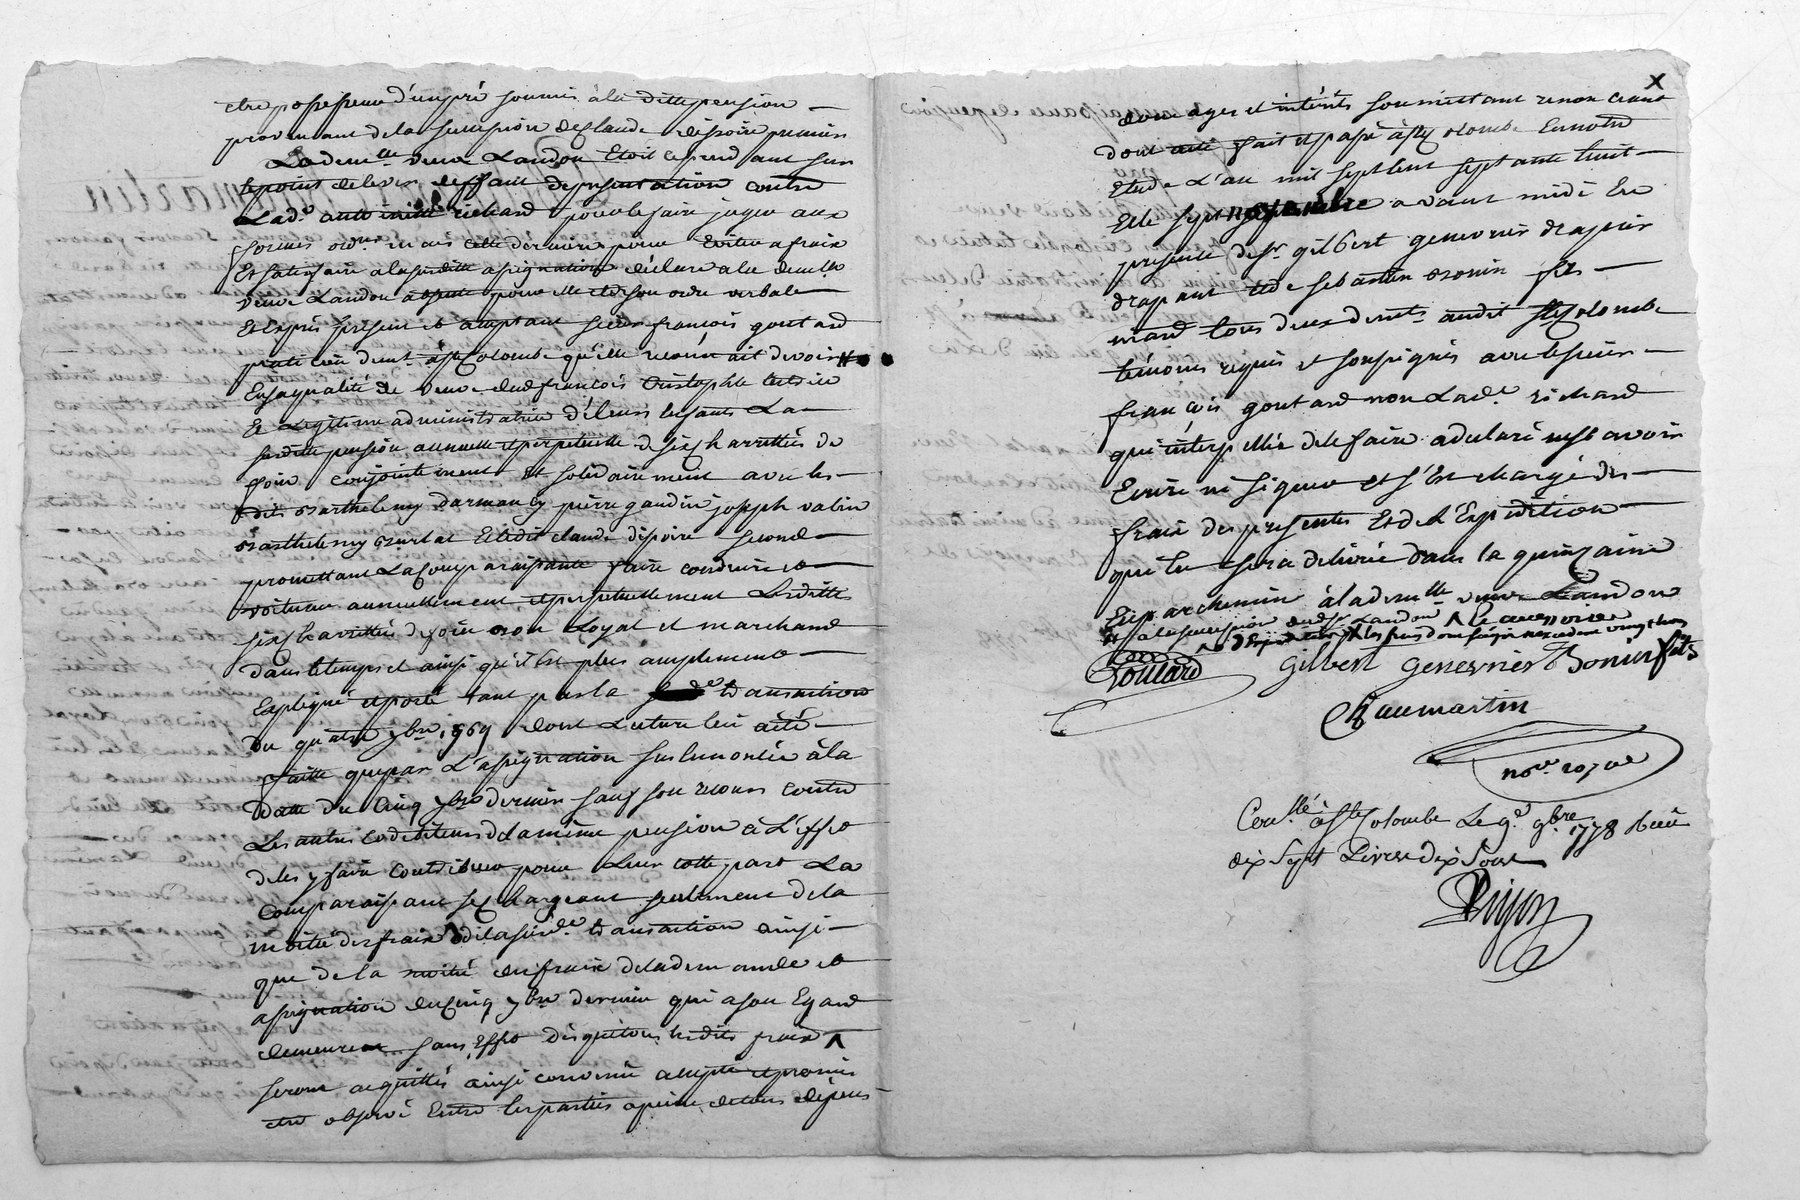 etre possesseur d'un pré soumis à la ditte pension
provenant de la succession de Claude depoire premier
La dem.lle veuve Landon Etoit cependant sur
le point de lever deffaut de presentation contre
Lad.e antoinette richard pour le faire juger aux
formes ord.res mais cette derniere pour Eviter a fraix
Et satisfaire a la susditte assignation déclare a la dem.lle
veuve Landon absente pour elle et de son ordre verbal
Et Exprès present et acceptant sieur françois goutard
praticien dem.t à S.te Colombe qu'elle reconnait devoir #
En sa qualité de veuve dud françois Cristophle tutrice
Et Legitime administratrice de leurs Enfants La
susditte pension annuelle et perpetuelle de six charrettées de
foin conjointement Et solidairement avec les
dits Barthelemy Darmancy pierre gaudin joseph valin
Barthelemy Burlat Et ledit claude depoire second
promettant La Comparaissante faire conduire et
voiturer annuellement et perpetuellement Lesdittes
six charrettées de foin bon Loyal et marchand
dans le temps et ainsi qu'il Est plus amplement
Expliqué et porté tant par la transaction
du quatre 9bre 1769 dont Lecture lui a été
faitte que par L'assignation sus Enoncée à la
datte du cinq 7bre dernier sauf son recours contre
Les autres codébiteurs de la même pension à L'effet
de les y faire contribuer pour Leur cotte part La
Comparaissant se chargeant seulement de la
moitié des fraix de la susd.e transaction ainsi
que de la moitié des fraix de la demande et
assignation du cinq 7bre dernier qui a son Egard
demeurera sans Effet des quitous lesdits fraix
seront acquittés ainsi convenu accepté et promis
etre observé Entre les parties a peine de tous dépens
X
dommages et intérêts soumettant renonceant
dont acte fait et passé à S.te Colombe En notre
Etude L'an mil sept Cent septante huit
Et le sept novembre avant midi En
presence de s.r gilbert genevrier drapier
drapant et de sebastien bonin fils
mard tous deux dem.ts audit S.te Colombe
témoins requis et soussignés avec le sieur
françois goutard non Lad.e richard
qui interpellée de le faire a declaré ne sçavoir
Ecrire ni signer et s'est chargée des
fraix des presentes Et de L'Expedition
qui En sera delivrée dans la quinzaine
En parchemin à la dem.lle veuve Landon
# a la succession dud s.r Landon
Goutard
Gilbert genevrier
Bonin fils
Chaumartin
no.re royal
Con.llé à S.te Colombe Le 9.e 9bre 1778 Reçu
dix Sept Livres dix Sous
Dijon